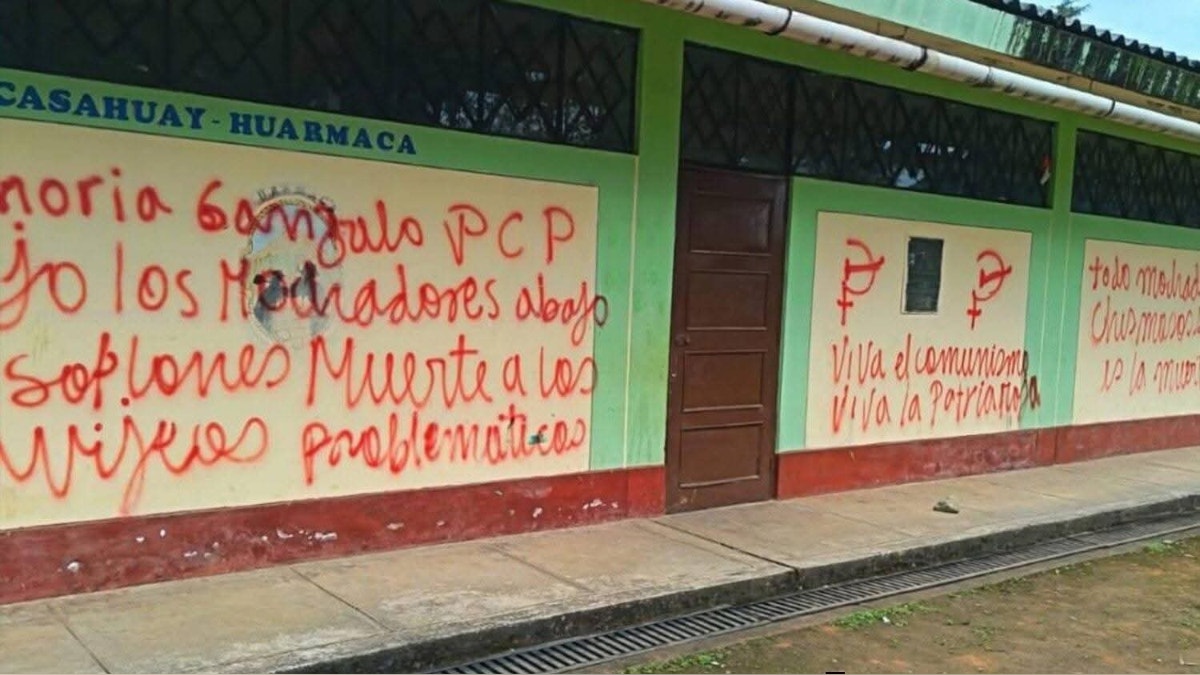 CASAHUAY - HUARMACA
noria Gonzalo PCP
jo los Mochadores abajo
soplones Muerte a los
Wijeros problemáticos
Viva el comunismo
Viva la Patria Roja
todo mochad
Chismosos
es la muer